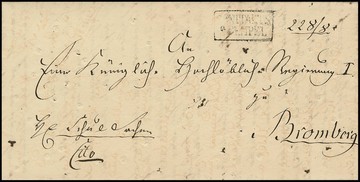 228/8
An
Eine Königliche Hochlöbliche Regierung I
zu
Schul Sachen
Cito
Bromberg